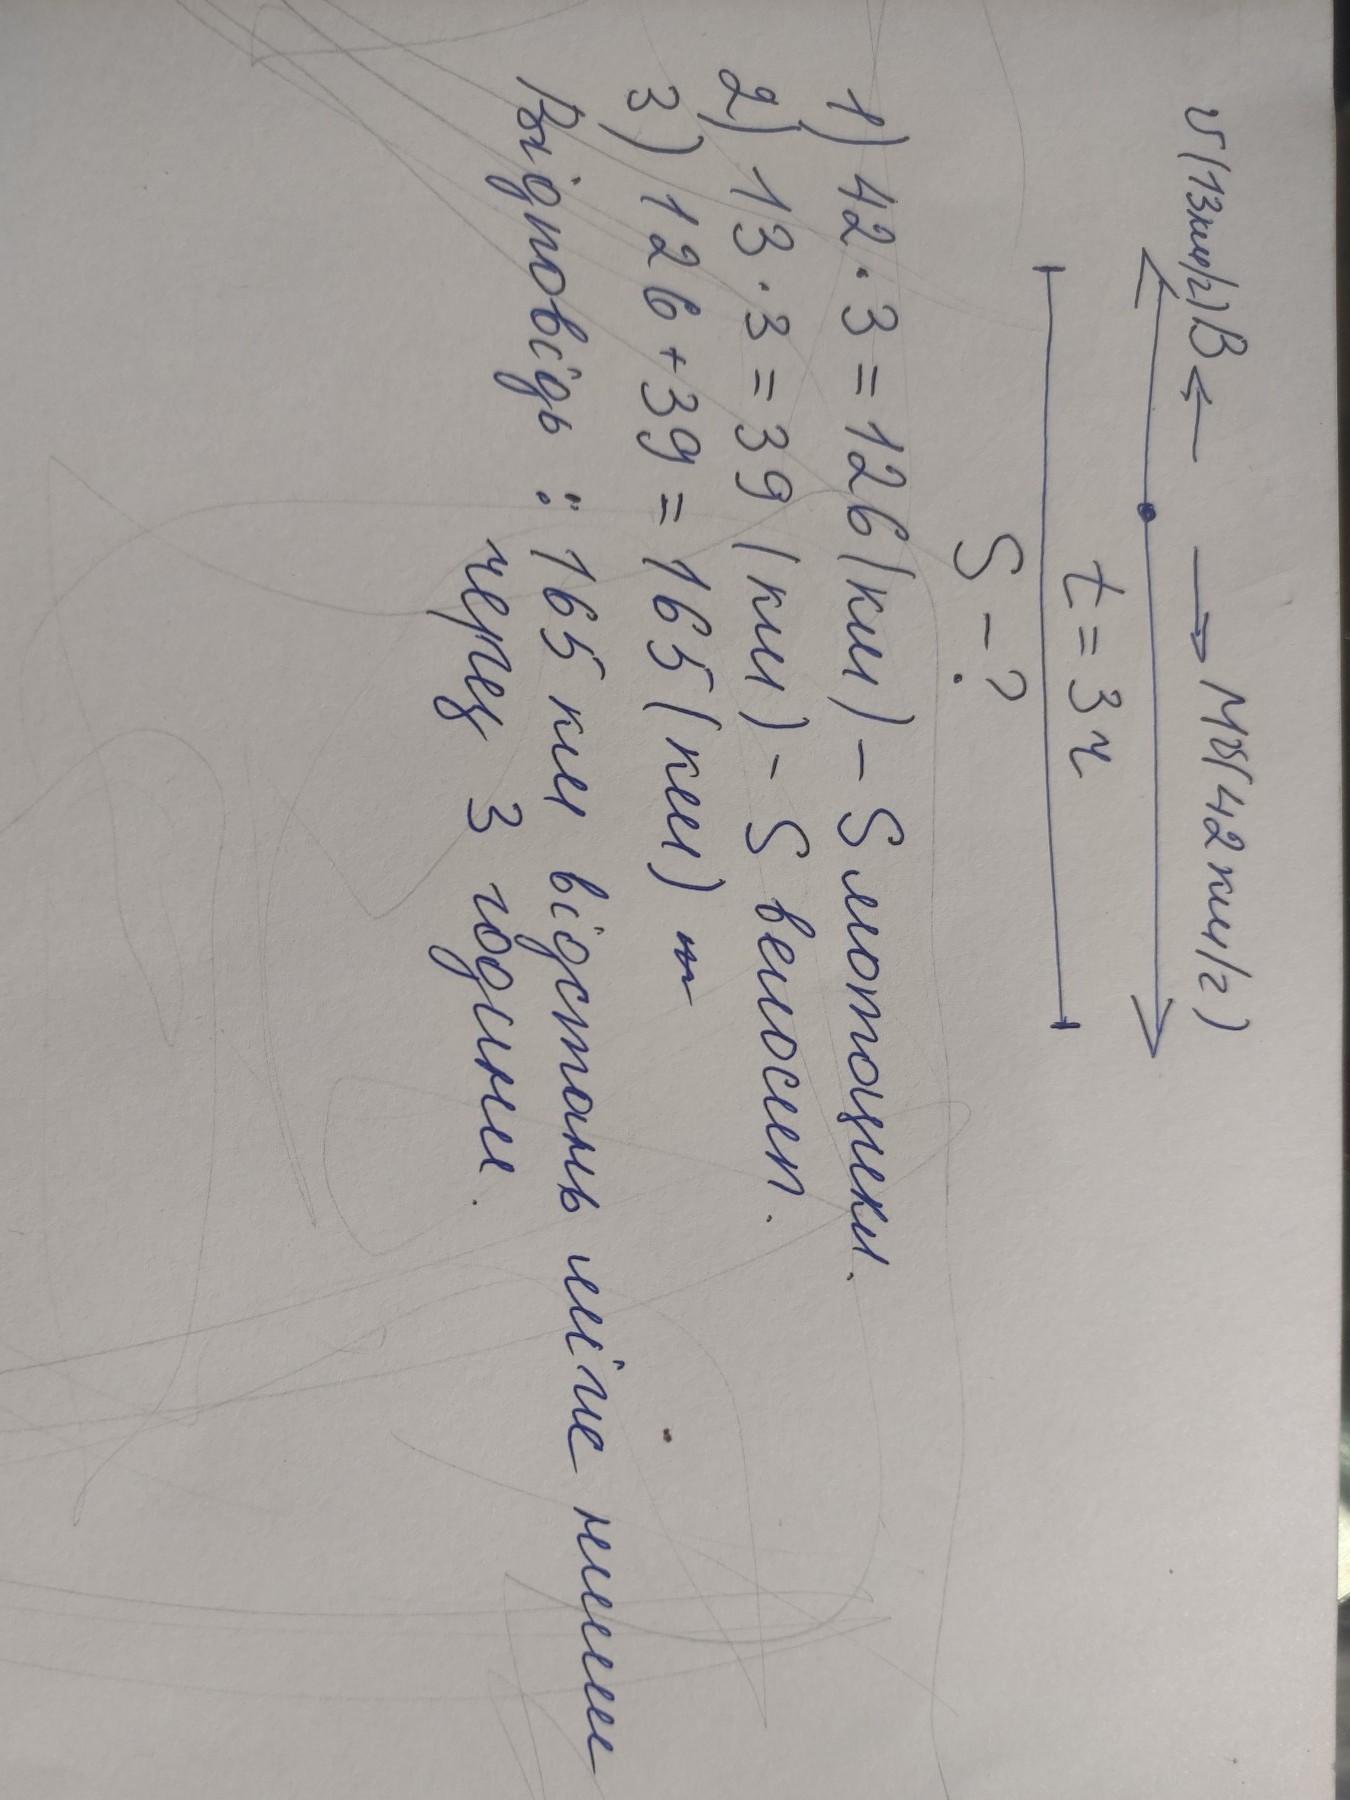 v(13км/г)В ← → Мv(42км/г)
t = 3ч
S - ?
1) 42 · 3 = 126 (км) - S мотоцикл.
2) 13 · 3 = 39 (км) - S велосип.
3) 126 + 39 = 165 (км)
Відповідь : 165 км відстань між ними
через 3 години.